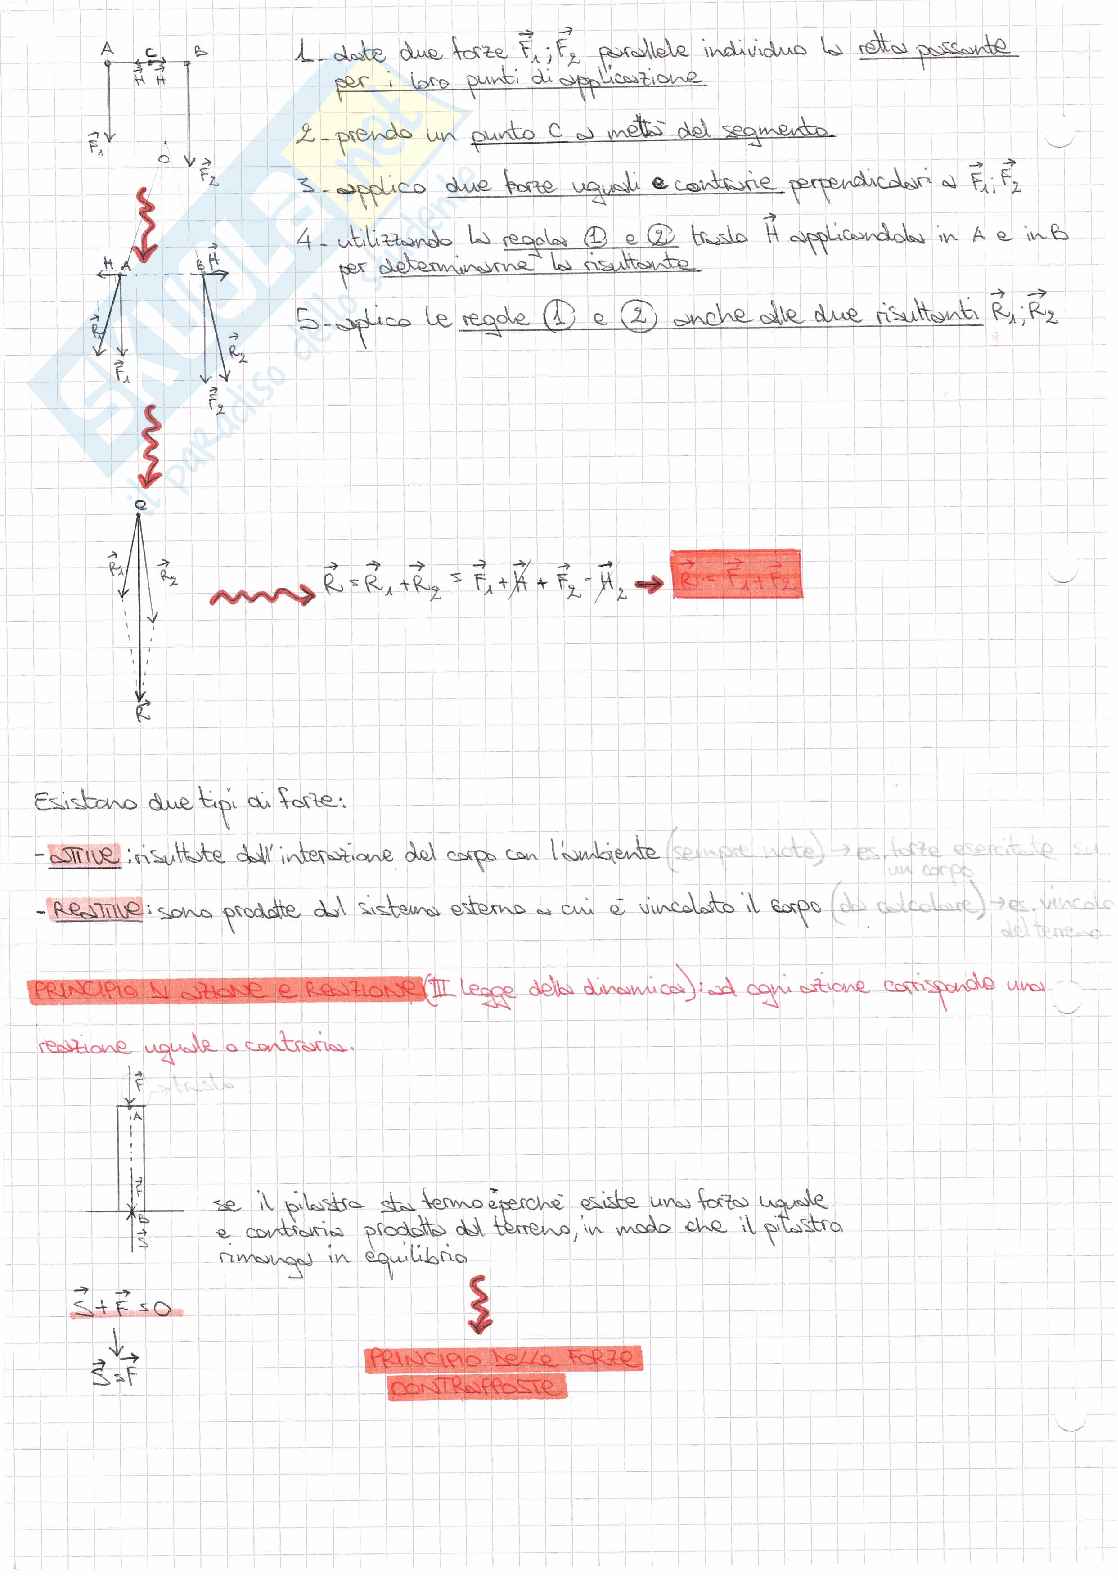 A C B
H H
F₁
O
F₂
1_ date due forze F₁; F₂ parallele individuo la retta passante
per i loro punti di applicazione
2_ prendo un punto C a metà del segmento
3_ applico due forze uguali e contrarie perpendicolari a F₁; F₂
4_ utilizzando la regola ① e ② traslo H applicandola in A e in B
per determinarne la risultante
5_ applico le regole ① e ② anche alle due risultanti R₁; R₂
H A B H
R₁ F₁ R₂
F₂
SKUOLA.net
il paradiso dello studente
O
R₁ R₂
R = R₁ + R₂ = F₁ + H + F₂ - H₂ → R = F₁ + F₂
R
Esistono due tipi di forze:
- ATTIVE: risultate dall'interazione del corpo con l'ambiente (sempre note) → es. forze esercitate su
un corpo
- REATTIVE: sono prodotte dal sistema esterno a cui è vincolato il corpo (da calcolare) → es. vincolo
del terreno
PRINCIPIO DI AZIONE E REAZIONE (III legge della dinamica): ad ogni azione corrisponde una
reazione uguale o contraria.
F → traslo
A
F
B
S
se il pilastro sta fermo è perché esiste una forza uguale
e contraria prodotta dal terreno, in modo che il pilastro
rimanga in equilibrio
S + F = 0
S = F
PRINCIPIO DELLE FORZE
CONTRAPPOSTE